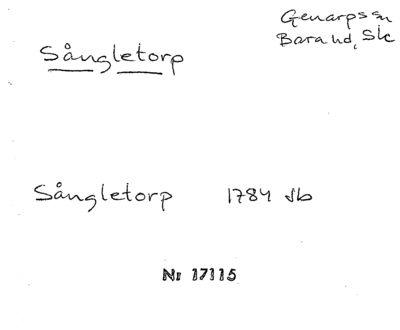 Genarps sn
Bara hd, Sk
Sångletorp
Sångletorp 1784 Jb
Nr 17115